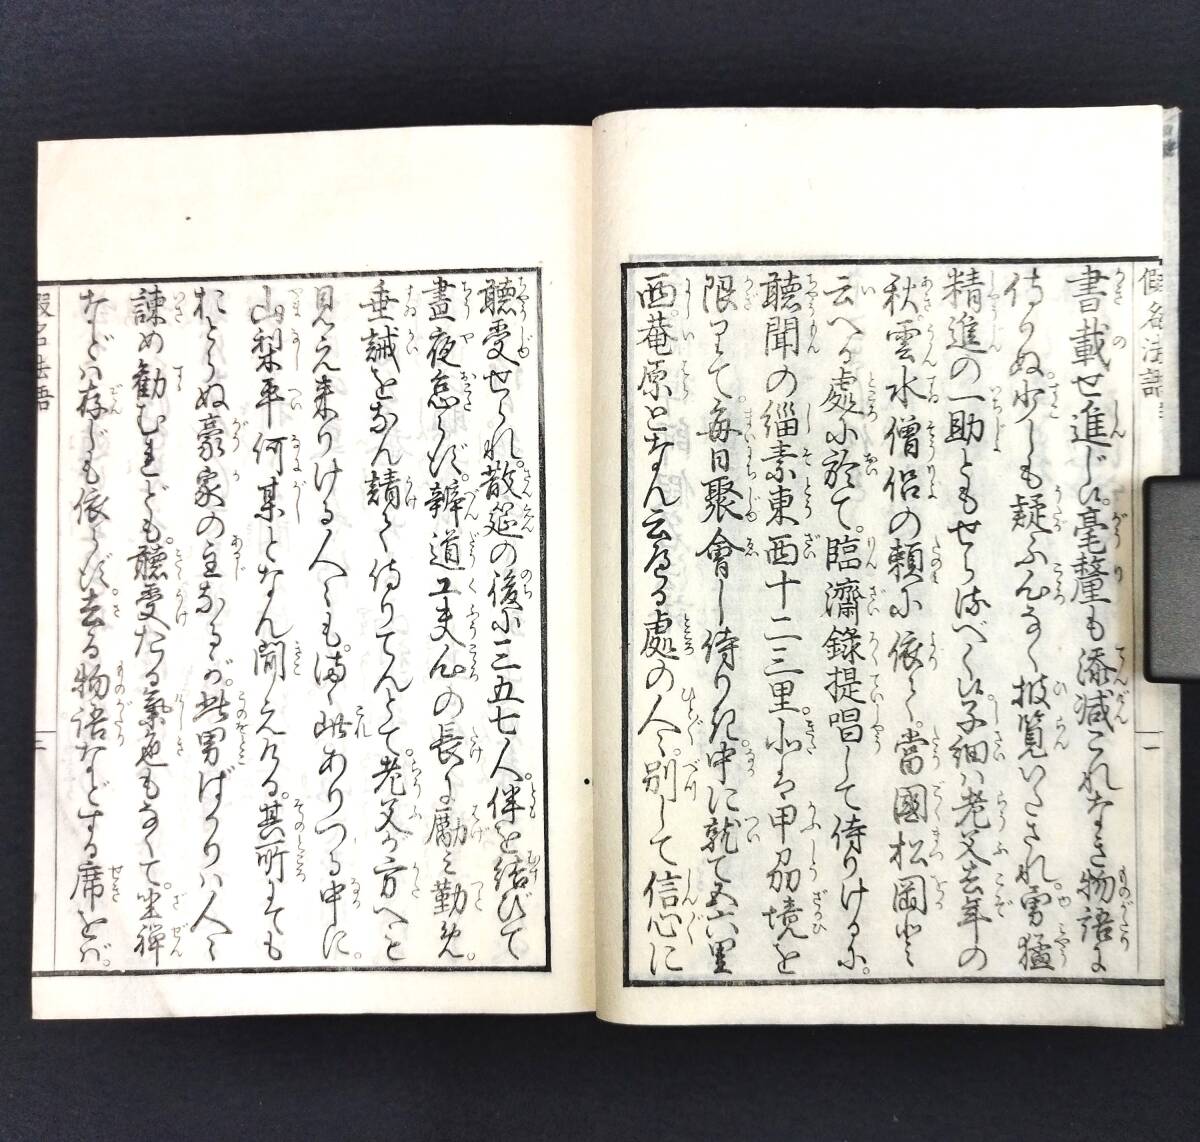 假名法語
書載せ進じ候。毫釐も添減これなき物語に
侍りぬ。少しも疑ふ心なく披覧いたされ。勇猛
精進の一助ともせらるべく候。子細ハ老父去年の
秋。雲水僧侶の頼に依て。當國松岡と
云へる處に於て。臨濟錄提唱して侍りけるに。
聽聞の緇素東西十二三里。北は甲刕境を
限りて。毎日聚會し侍りき。中に就て五六里
西。菴原となん云へる處の人々。別して信心に
聽受せられ。散筵の後に三五七人。伴を結びて
晝夜怠らず。辨道工夫心の長に勵み勤め。
垂誡をなん請く侍りてんとて。老父が方へと
見え來りける人々も。まゝ此ありつる中に。
山梨平何某となん聞えける。其所にても
おとらぬ豪家の主なるが。此男ばかりハ人々
諫め勸むれども。聽受たる氣色もなくて。坐禪
などハ存じも依らず。去る物語などする席をバ。
假名法語
三